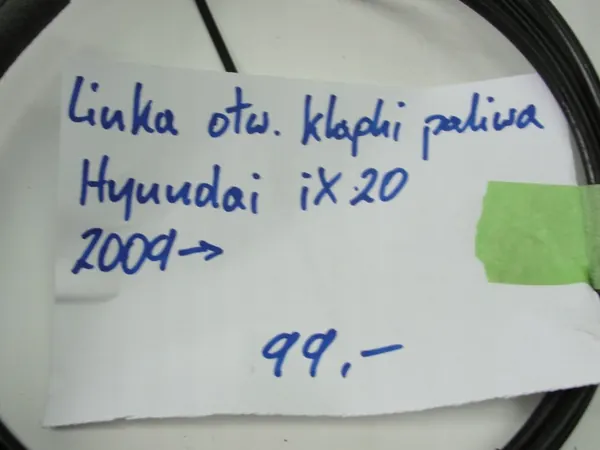 Linka otw. klapki paliwa
Hyundai iX20
2009→
99,-